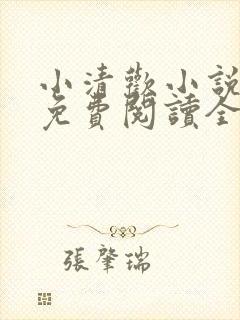 小清歡小說
免費閱讀全
張肇瑞